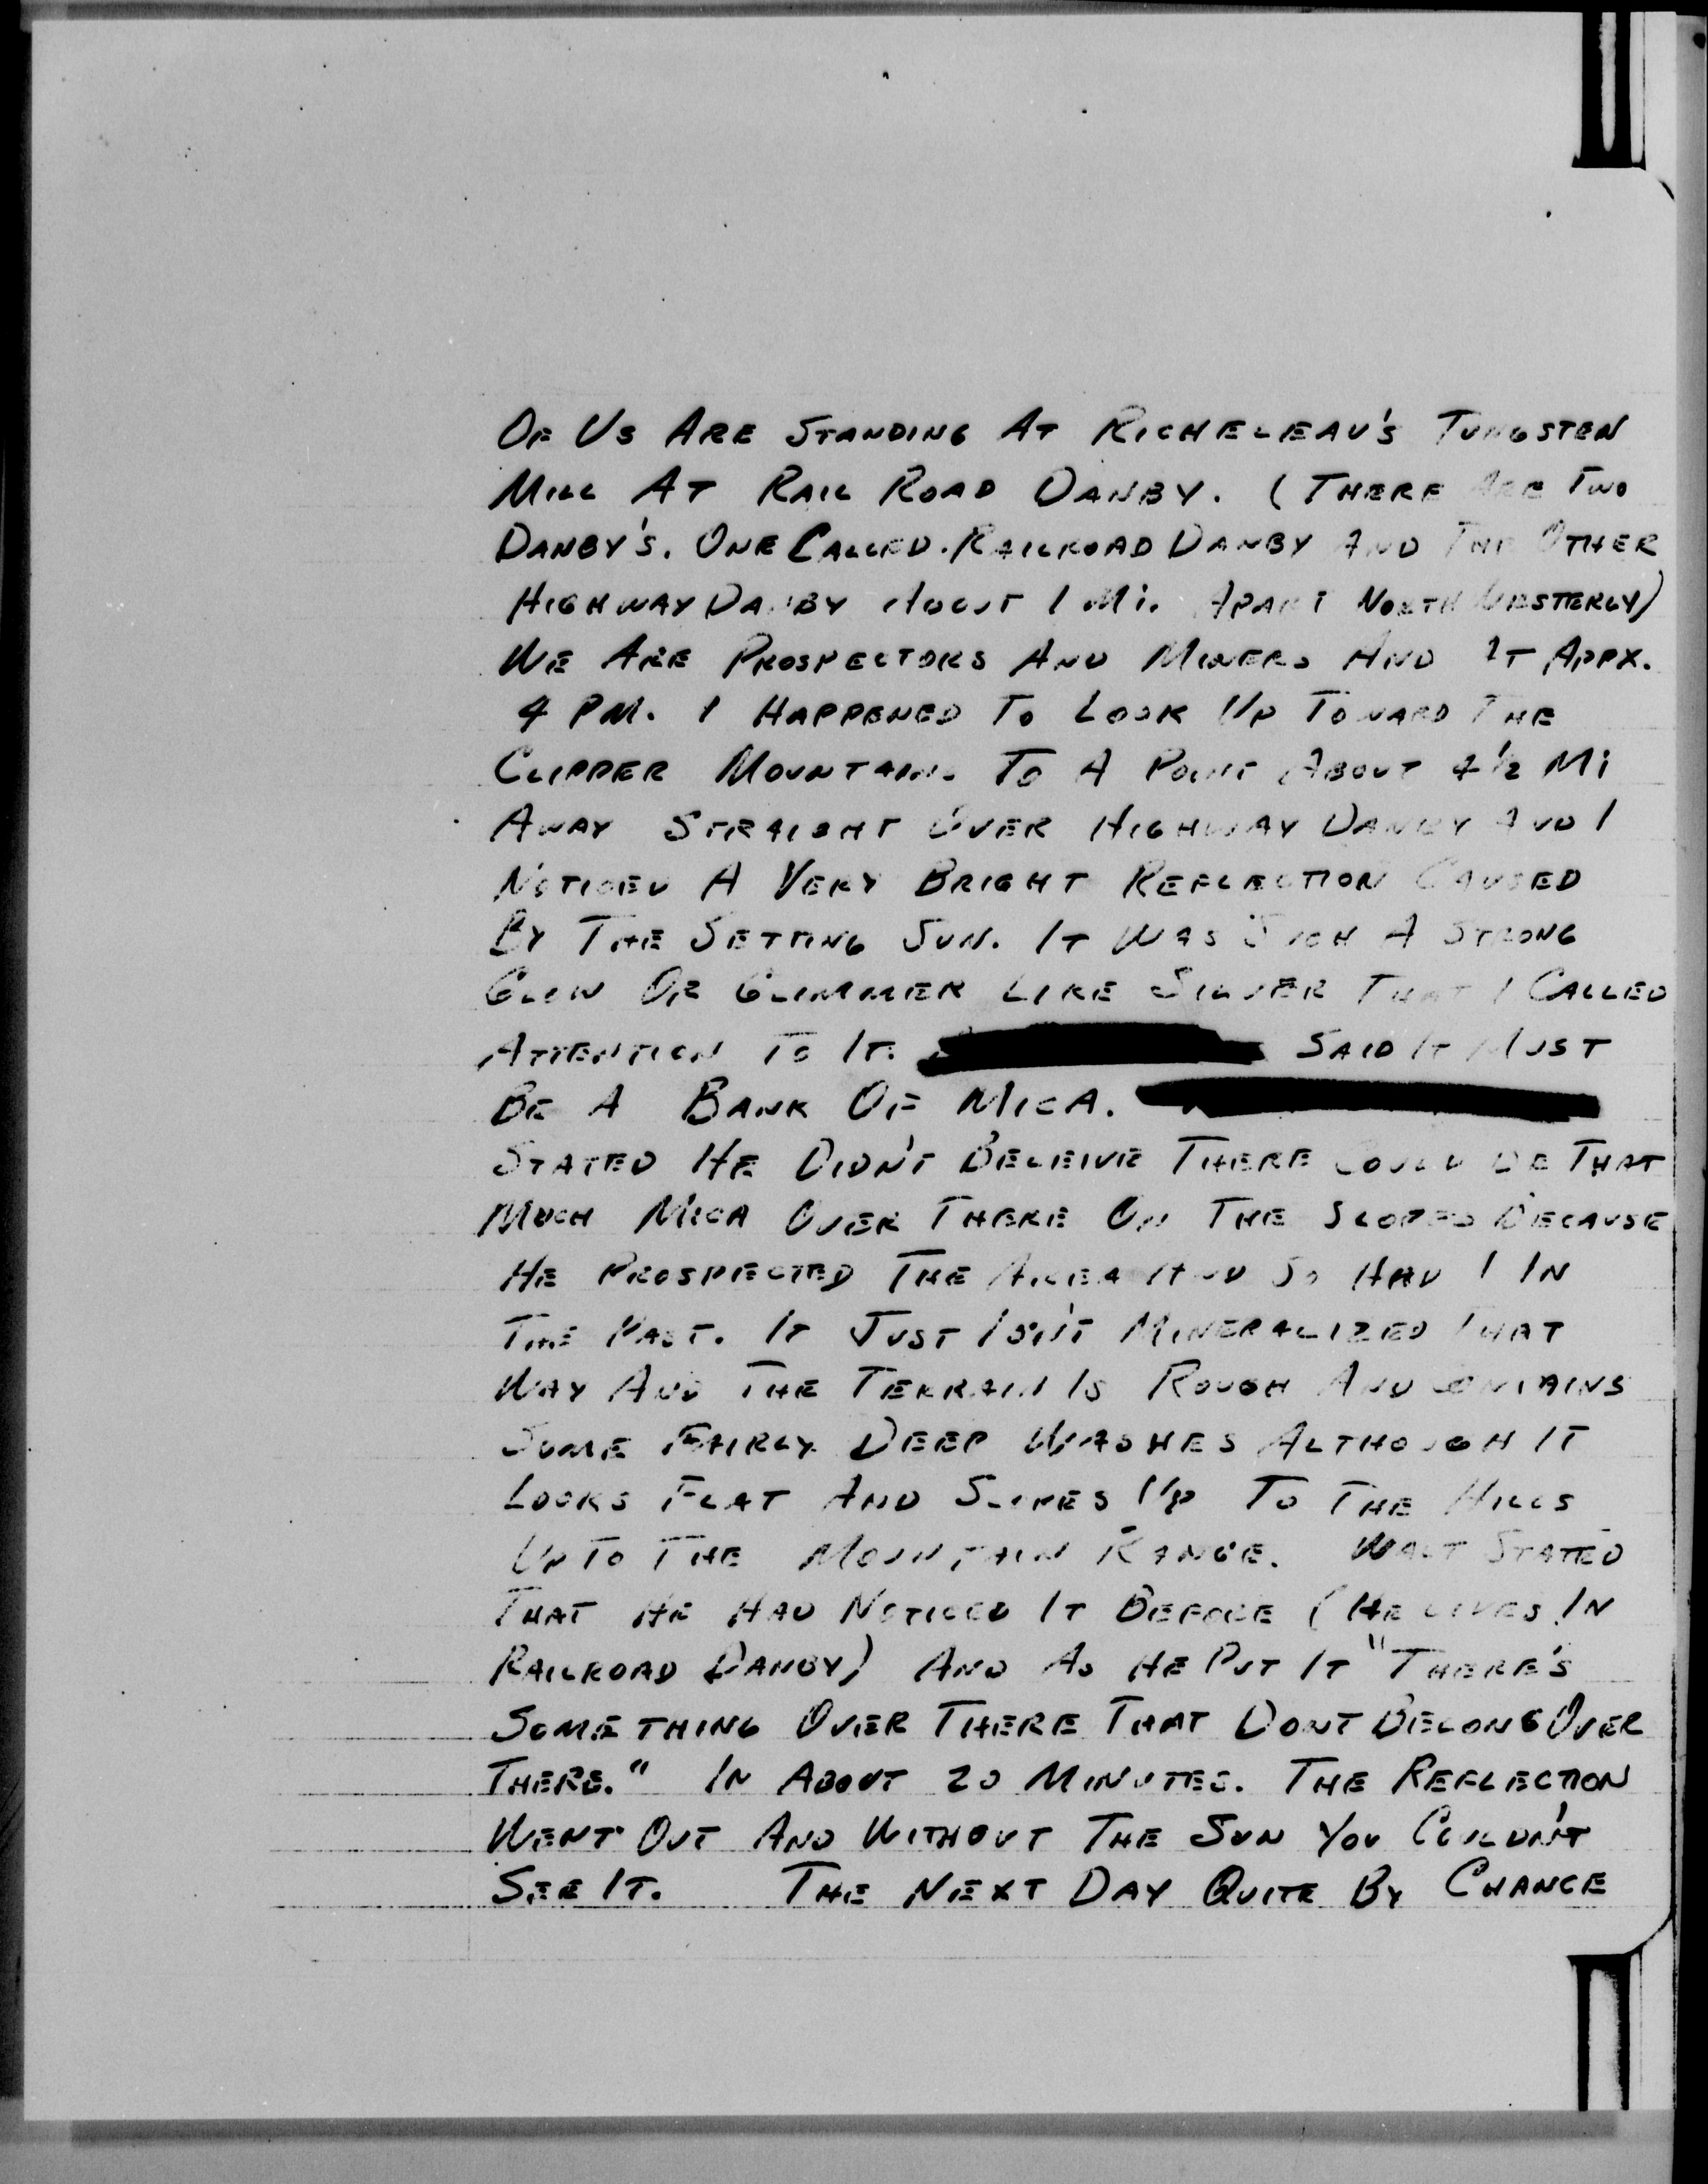 OF US ARE STANDING AT RICHELEAU'S TUNGSTEN
MILL AT RAIL ROAD DANBY. (THERE ARE TWO
DANBY'S. ONE CALLED RAILROAD DANBY AND THE OTHER
HIGHWAY DANBY ABOUT 1 MI. APART NORTH WESTERLY)
WE ARE PROSPECTORS AND MINERS AND AT APPX.
4 PM. I HAPPENED TO LOOK UP TOWARD THE
CLIPPER MOUNTAINS TO A POINT ABOUT 4½ MI
AWAY STRAIGHT OVER HIGHWAY DANBY AND I
NOTICED A VERY BRIGHT REFLECTION CAUSED
BY THE SETTING SUN. IT WAS SUCH A STRONG
GLOW OR GLIMMER LIKE SILVER THAT I CALLED
ATTENTION TO IT. SAID IT MUST
BE A BANK OF MICA.
STATED HE DIDN'T BELEIVE THERE COULD BE THAT
MUCH MICA OVER THERE ON THE SLOPES BECAUSE
HE PROSPECTED THE AREA AND SO HAD I IN
THE PAST. IT JUST ISN'T MINERALIZED THAT
WAY AND THE TERRAIN IS ROUGH AND CONTAINS
SOME FAIRLY DEEP WASHES ALTHOUGH IT
LOOKS FLAT AND SLOPES UP TO THE HILLS
UP TO THE MOUNTAIN RANGE. WALT STATED
THAT HE HAD NOTICED IT BEFORE (HE LIVES IN
RAILROAD DANBY) AND AS HE PUT IT "THERE'S
SOMETHING OVER THERE THAT DONT BELONG OVER
THERE." IN ABOUT 20 MINUTES. THE REFLECTION
WENT OUT AND WITHOUT THE SUN YOU COULDN'T
SEE IT. THE NEXT DAY QUITE BY CHANCE